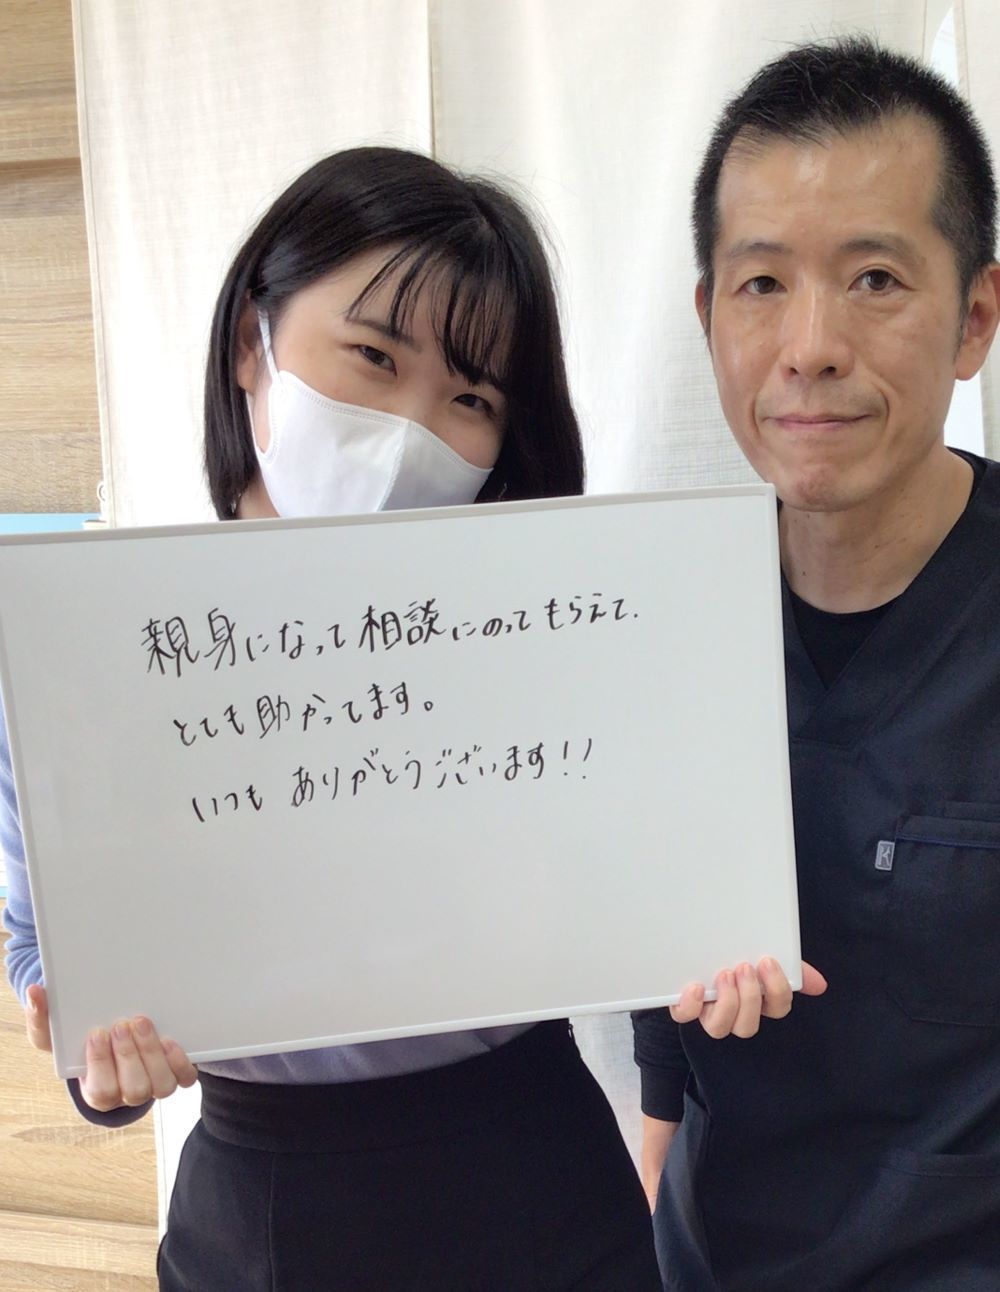 親身になって相談にのってもらえて、
とても助かってます。
いつもありがとうございます!!